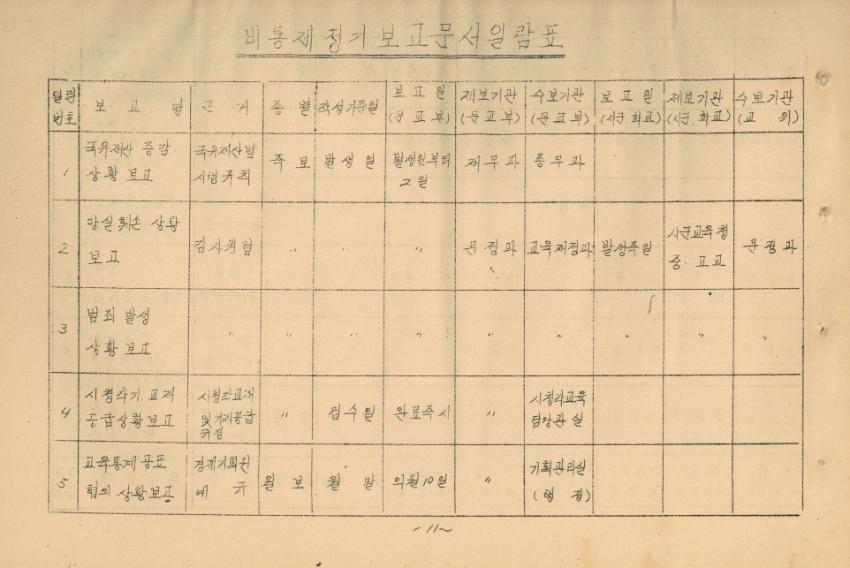 비통제정기보고문서일람표
일련번호 보고명 근거 종별 작성기준일 보고일(문교부) 제보기관(문교부) 수보기관(문교부) 보고일(시군,학교) 제보기관(시군,학교) 수보기관(교위)
1 국유재산 증감 상황 보고 국유재산법 시행규칙 즉보 발생일 발생일부터 2일 재무과 총무과
2 망실훼손 상황 보고 감사원법 〃 〃 〃 문정과 교육재정과 발생즉일 시군교육청 중·고교 문정과
3 범죄발생 상황보고 〃 〃 〃 〃 〃 〃 〃 〃 〃
4 시청각기.교재 공급상황보고 시청각교재 및 기재공급 규정 〃 접수일 완료즉시 〃 시청각교육 담당관실
5 교육통계공표 협의 상황보고 경제기획원 예규 월보 월말 익월10일 〃 기획관리실 (행정)
-11-